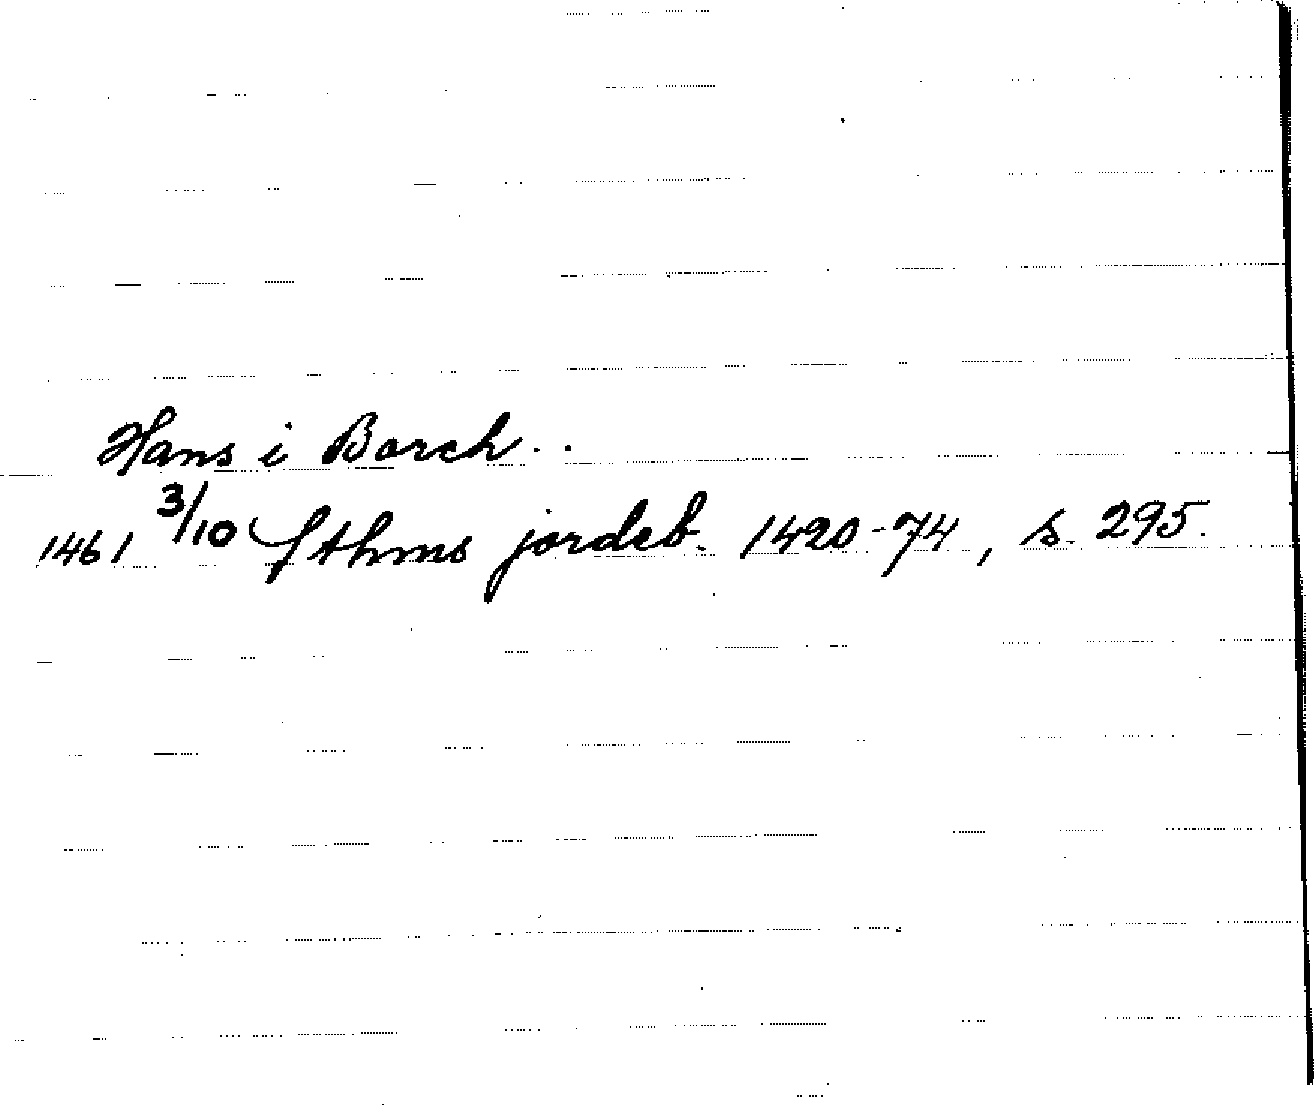 Hans i Borch..
1461 3/10 Sthms jordeb. 1420-74, s. 295.